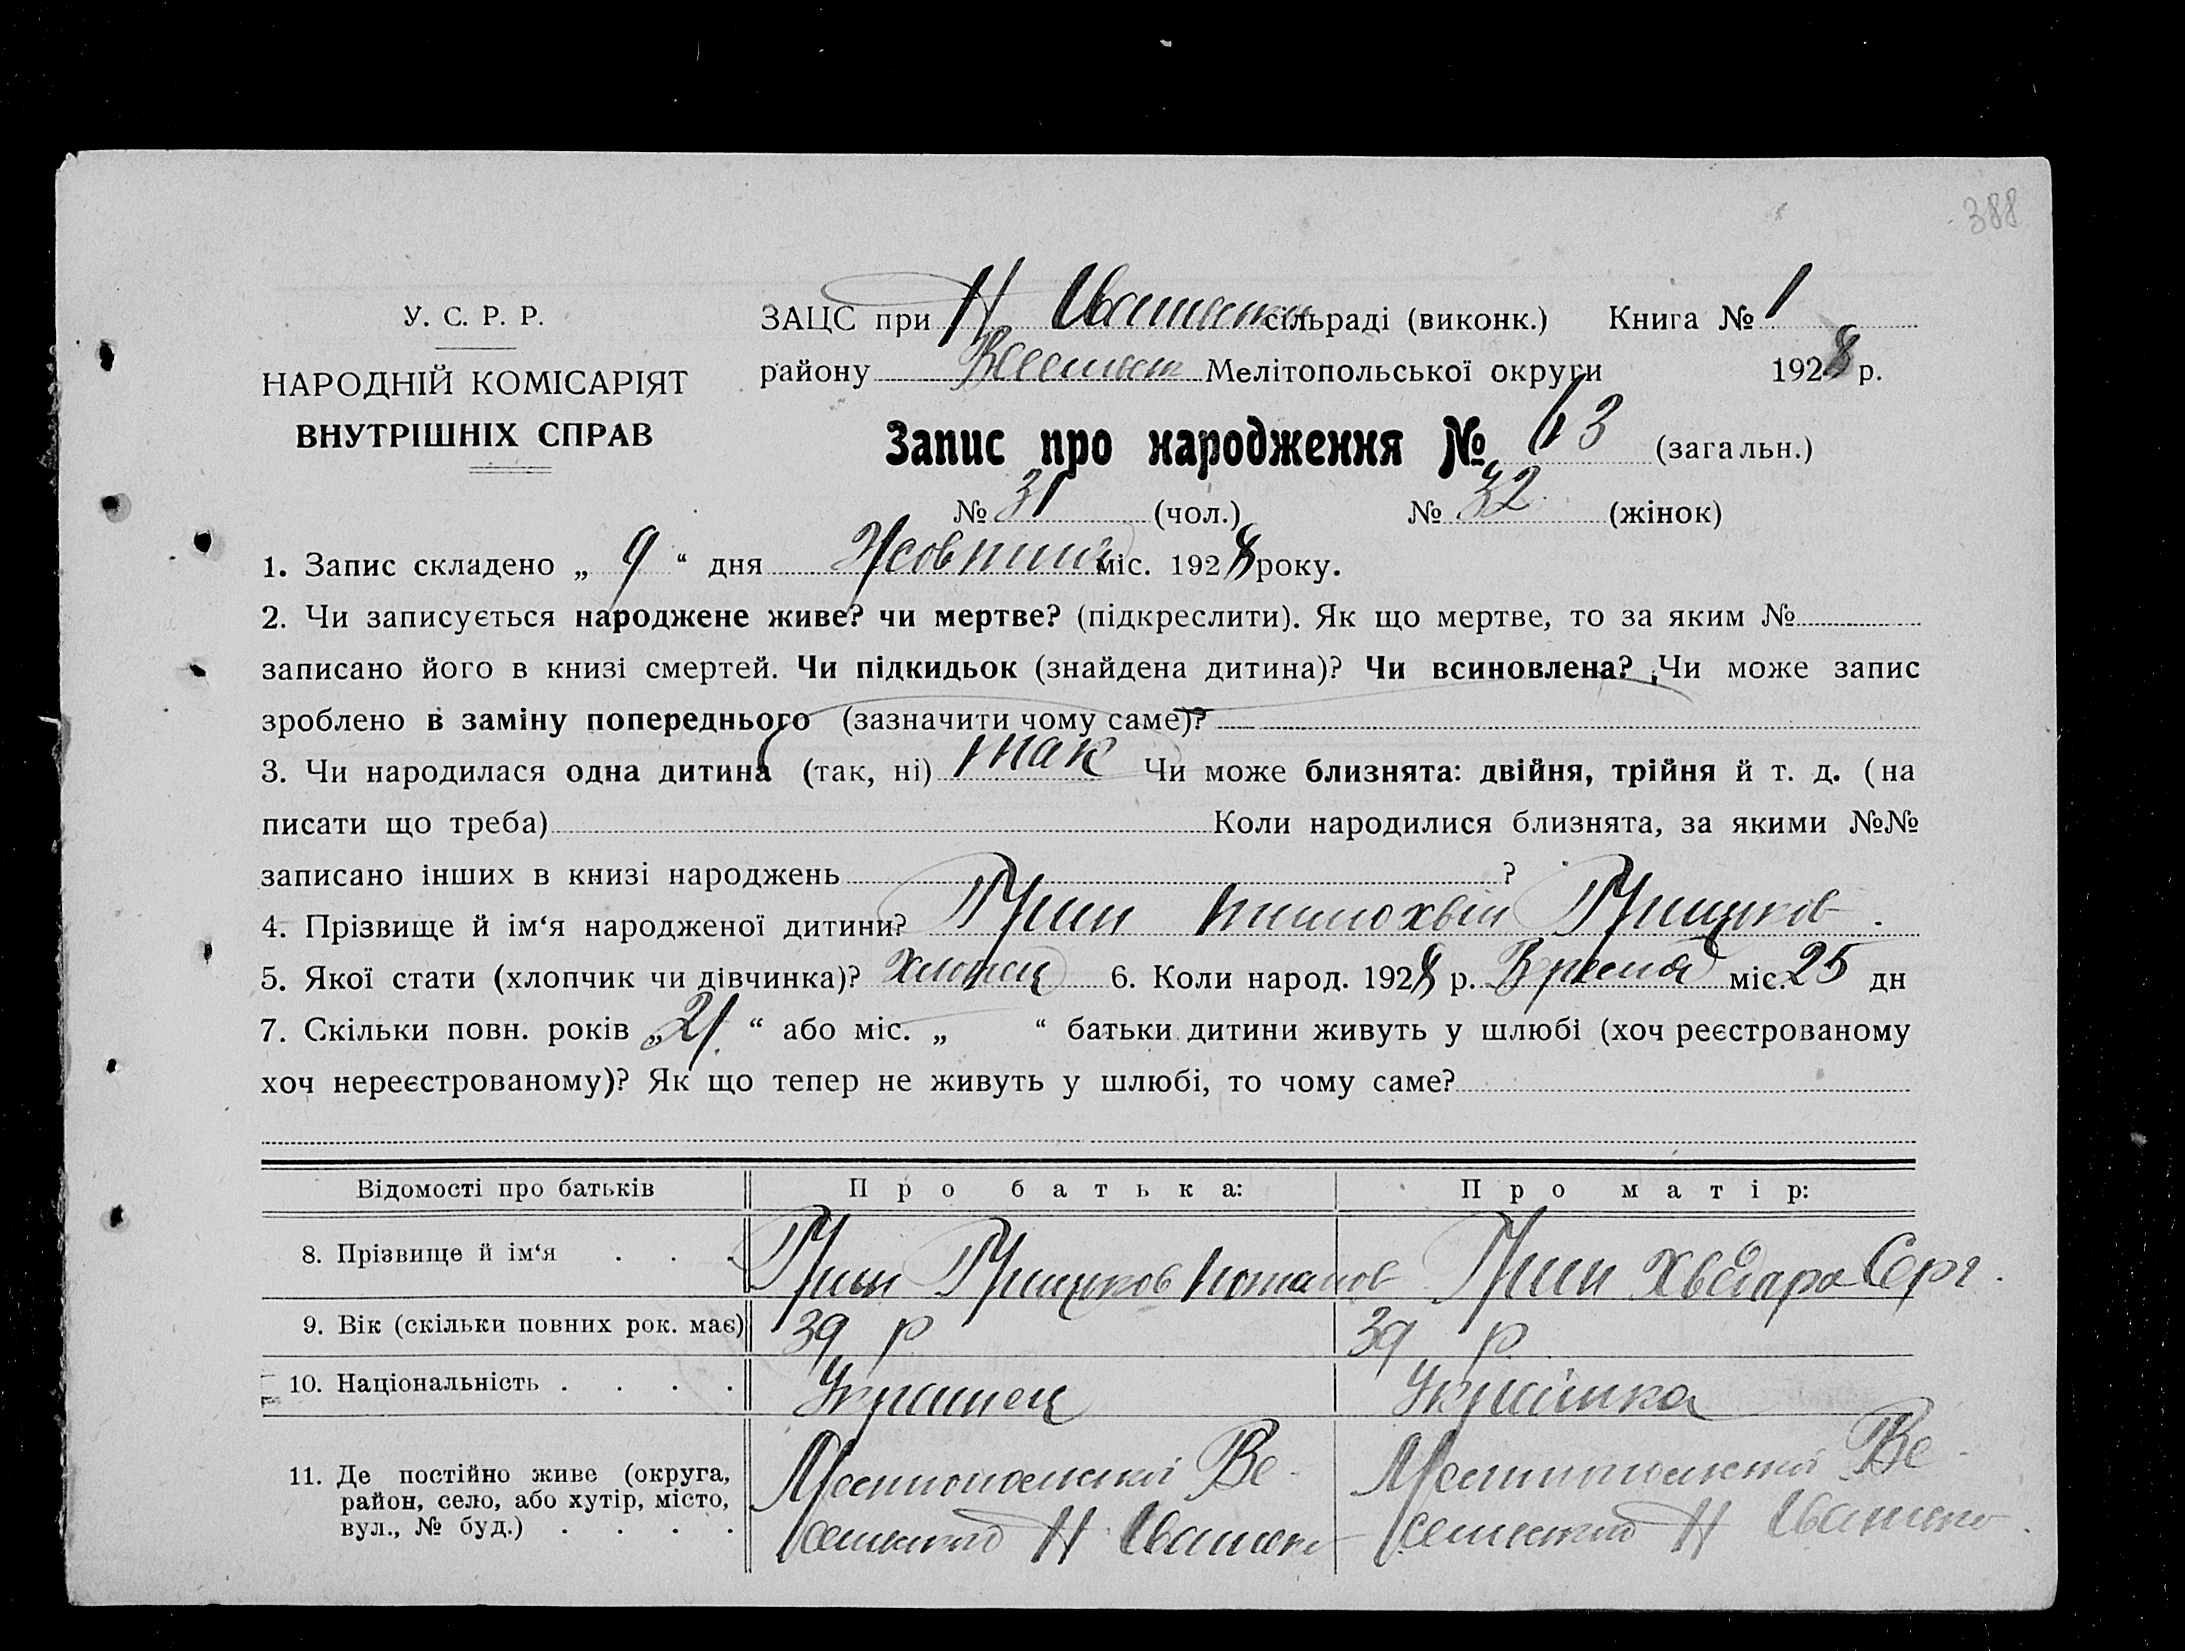 388
У. С. Р. Р.
НАРОДНІЙ КОМІСАРІЯТ
ВНУТРІШНІХ СПРАВ
ЗАЦС при Н Іванівськ сільраді (виконк.) Книга № 1
району Веселівськ Мелітопольської округи 1928 р.
Запис про народження № 63 (загальн.)
№ 31 (чол.) № 32 (жінок)
1. Запис складено „ 9 “ дня Жовтня міс. 1928 року.
2. Чи записується народжене живе? чи мертве? (підкреслити). Як що мертве, то за яким №
записано його в книзі смертей. Чи підкидьок (знайдена дитина)? Чи всиновлена? Чи може запис
зроблено в заміну попереднього (зазначити чому саме)?
3. Чи народилася одна дитина (так, ні) так Чи може близнята: двійня, трійня й т. д. (на
писати що треба) Коли народилися близнята, за якими №№
записано інших в книзі народжень ?
4. Прізвище й ім‘я народженої дитини? Тимохвій
5. Якої стати (хлопчик чи дівчинка)? Хлопец 6. Коли народ. 1928 р. Вресня міс. 25 дн
7. Скільки повн. років „ 21 “ або міс. „ “ батьки дитини живуть у шлюбі (хоч реєстрованому
хоч нереєстрованому)? Як що тепер не живуть у шлюбі, то чому саме?
Відомості про батьків Про батька: Про матір:
8. Прізвище й ім‘я . . . Потапов Хведара Серг.
9. Вік (скільки повних рок. має) 39 р 39 р
10. Національність . . . . Украинец Украінка
11. Де постійно живе (округа, Мелитопольской Ве- Мелитопольской Ве-
район, село, або хутір, місто,
вул., № буд.) . . . .